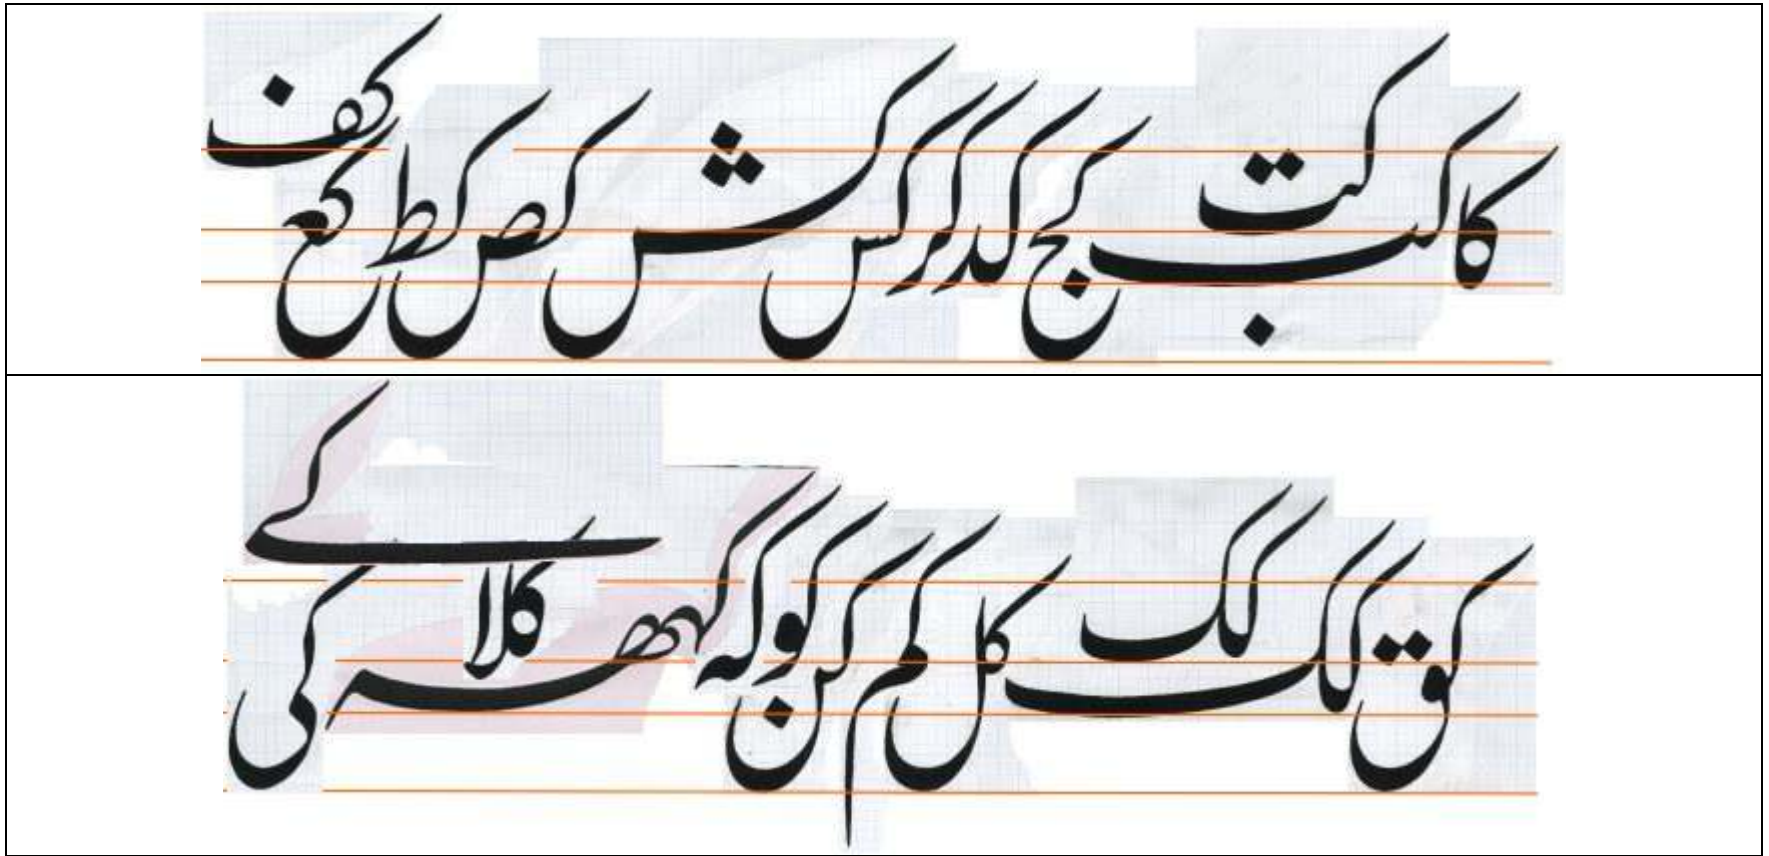 کا کب کت کج کد کر کس کش کص کط کع کف
کق کک کک کل کم کن کو کہ کھ کلا کی کے